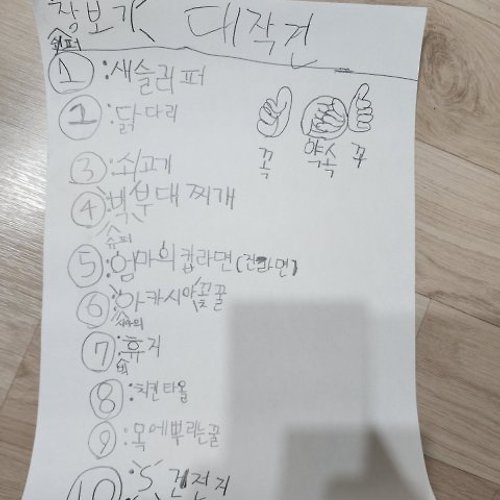 장보기 대작견
슈퍼
1:새슬리퍼
2:닭다리
꼭 약속 꾹
3:쇠고기
4:빅부대찌개
슈퍼
5:엄마의컵라면(진라면)
6:아카시아꽃꿀
7:휴지
8:치킨타올
9:목에뿌리는꿀
10: